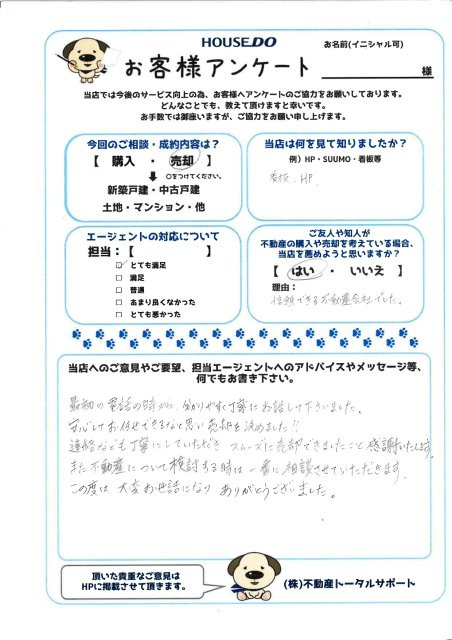 HOUSEDO
お名前(イニシャル可)
お客様アンケート
様
当店では今後のサービス向上の為、お客様へアンケートのご協力をお願いしております。
どんなことでも、教えて頂けますと幸いです。
お手数では御座いますが、ご協力をお願い申し上げます。
今回のご相談・成約内容は?
【 購入 ・ 売却 】
〇をつけてください。
新築戸建・中古戸建
土地・マンション・他
当店は何を見て知りましたか?
例)HP・SUUMO・看板等
看板、HP
エージェントの対応について
担当:【 】
□ とても満足
□ 満足
□ 普通
□ あまり良くなかった
□ とても悪かった
ご友人や知人が
不動産の購入や売却を考えている場合、
当店を薦めようと思いますか?
【 はい ・ いいえ 】
理由:
信頼できる不動産会社でした。
当店へのご意見やご要望、担当エージェントへのアドバイスやメッセージ等、
何でもお書き下さい。
最初の電話の時から、分かりやすく丁寧にお話して下さいました。
安心してお任せできるなと思い売却を決めました!!
連絡なども丁寧にしていただき スムーズに売却できましたこと感謝いたします。
また不動産について検討する時は一番に相談させていただきます。
この度は 大変お世話になり ありがとうございました。
頂いた貴重なご意見は
HPに掲載させて頂きます。
(株)不動産トータルサポート